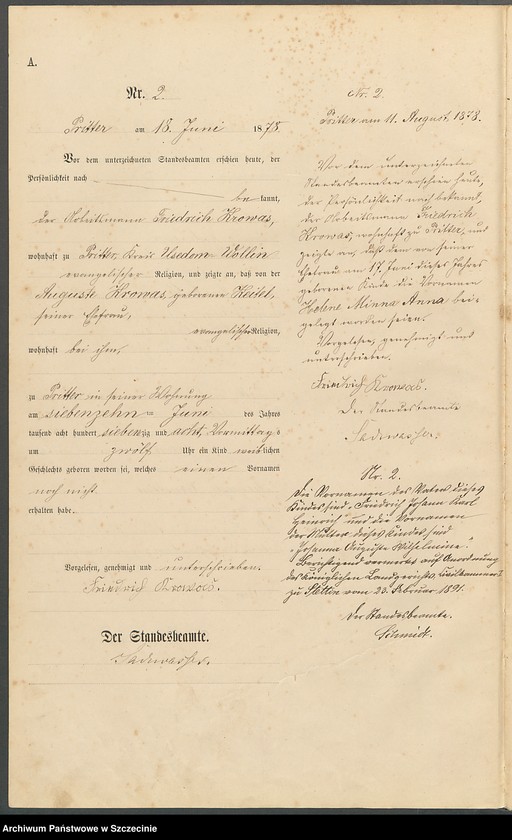 A.
Nr. 2.
Pritter am 18. Juni 1878.
Vor dem unterzeichneten Standesbeamten erschien heute, der
Persönlichkeit nach
be kannt,
der Arbeitsmann Friedrich Krowas,
wohnhaft zu Pritter, Kreis Usedom Wollin
evangelischer Religion, und zeigte an, daß von der
Auguste Krowas, geborene
seiner Ehefrau,
evangelischer Religion,
wohnhaft bei ihm,
zu Pritter in seiner Wohnung
am siebenzehn ten Juni des Jahres
tausend acht hundert siebenzig und acht, Vormittags
um zwölf Uhr ein Kind weiblichen
Geschlechts geboren worden sei, welches einen Vornamen
noch nicht
erhalten habe.
Vorgelesen, genehmigt und unterschrieben.
Friedrich Krowas.
Der Standesbeamte.
Nr. 2.
Pritter am 11. August 1878.
Vor dem unterzeichneten
Standesbeamten erschien heute,
der Persönlichkeit nach bekannt,
der Arbeitsmann Friedrich
Krowas, wohnhaft zu Pritter, und
zeigte an, daß dem von seiner
Ehefrau am 17. Juni dieses Jahres
geborenen Kinde die Vornamen
Helene Minna Anna bei-
gelegt worden seien.
Vorgelesen, genehmigt und
unterschrieben.
Friedrich Krowas.
Der Standesbeamte
Nr. 2.
Die Vornamen des Vaters dieses
Kindes sind „Friedrich Johann Karl
Heinrich“ und die Vornamen
der Mutter dieses Kindes sind
„Johanna Auguste Wilhelmine“.
Berichtigend vermerkt auf Anordnung
des Königlichen Landgerichts, Civilkammer I
zu Stettin vom 23. Februar 1891.
Der Standesbeamte.
Schmidt.
Archiwum Państwowe w Szczecinie